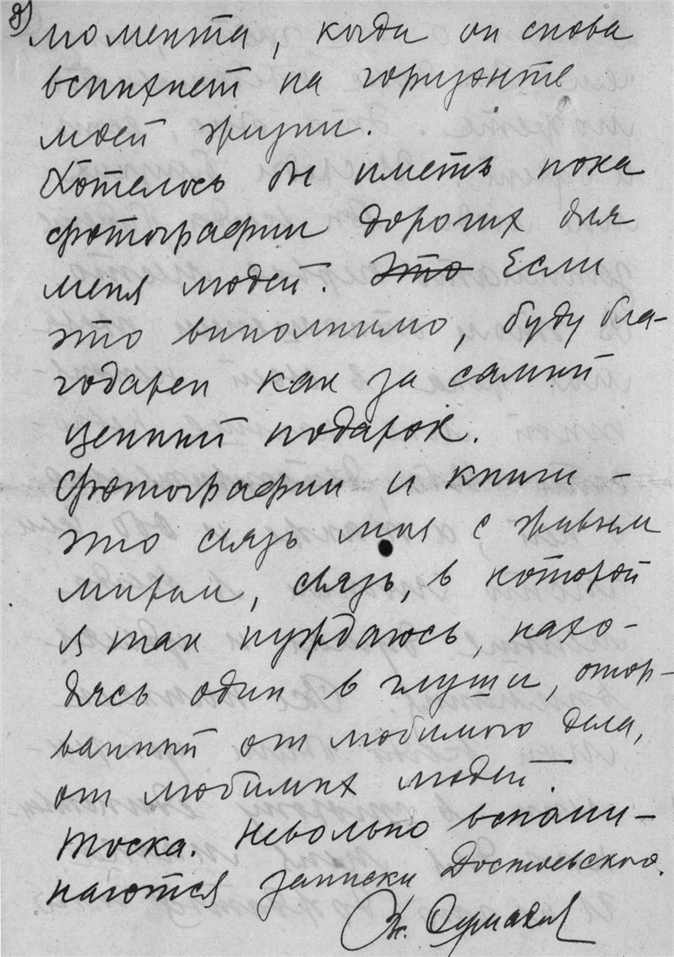 8)
момента, когда он снова
вспыхнет на горизонте
моей жизни.
Хотелось бы иметь пока
фотографии дорогих для
меня людей. Это Если
это выполнимо, буду бла-
годарен как за самый
ценный подарок.
Фотографии и книги –
это связь меня с живым
миром, связь, в которой
я так нуждаюсь, нахо-
дясь один в глуши, отор-
ванный от любимого дела,
от любимых людей.
Тоска. Невольно вспоми-
наются записки Достоевского.